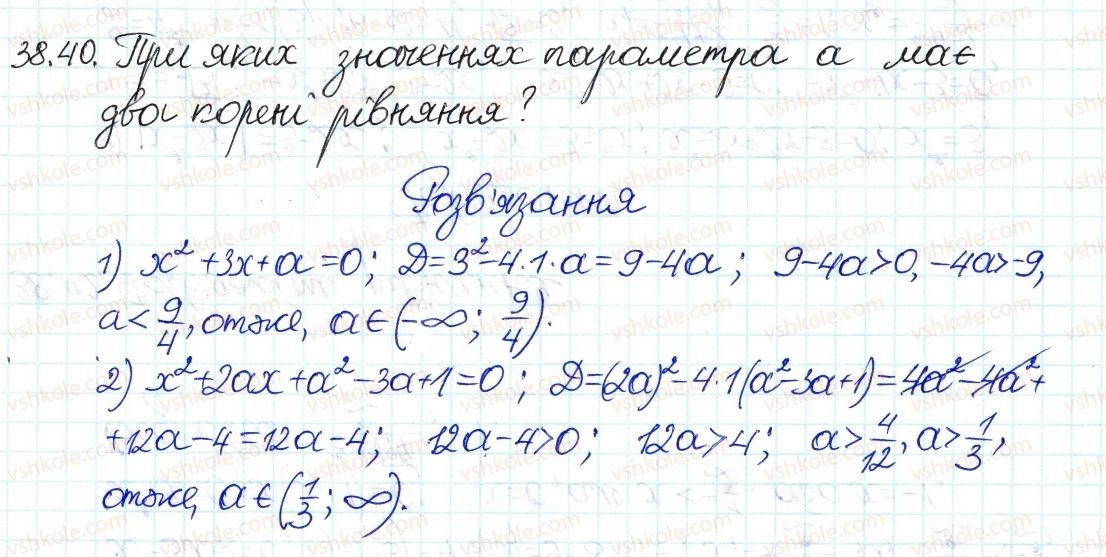 38.40. При яких значеннях параметра а має
два корені рівняння?
Розв'язання
1) x² + 3x + a = 0; D = 3² - 4·1·a = 9 - 4a; 9 - 4a > 0, -4a > -9,
a < 9/4, отже, a ∈ (-∞; 9/4).
2) x² + 2ax + a² - 3a + 1 = 0; D = (2a)² - 4·1(a² - 3a + 1) = 4a² - 4a² +
+ 12a - 4 = 12a - 4; 12a - 4 > 0; 12a > 4; a > 4/12, a > 1/3,
отже, a ∈ (1/3; ∞).